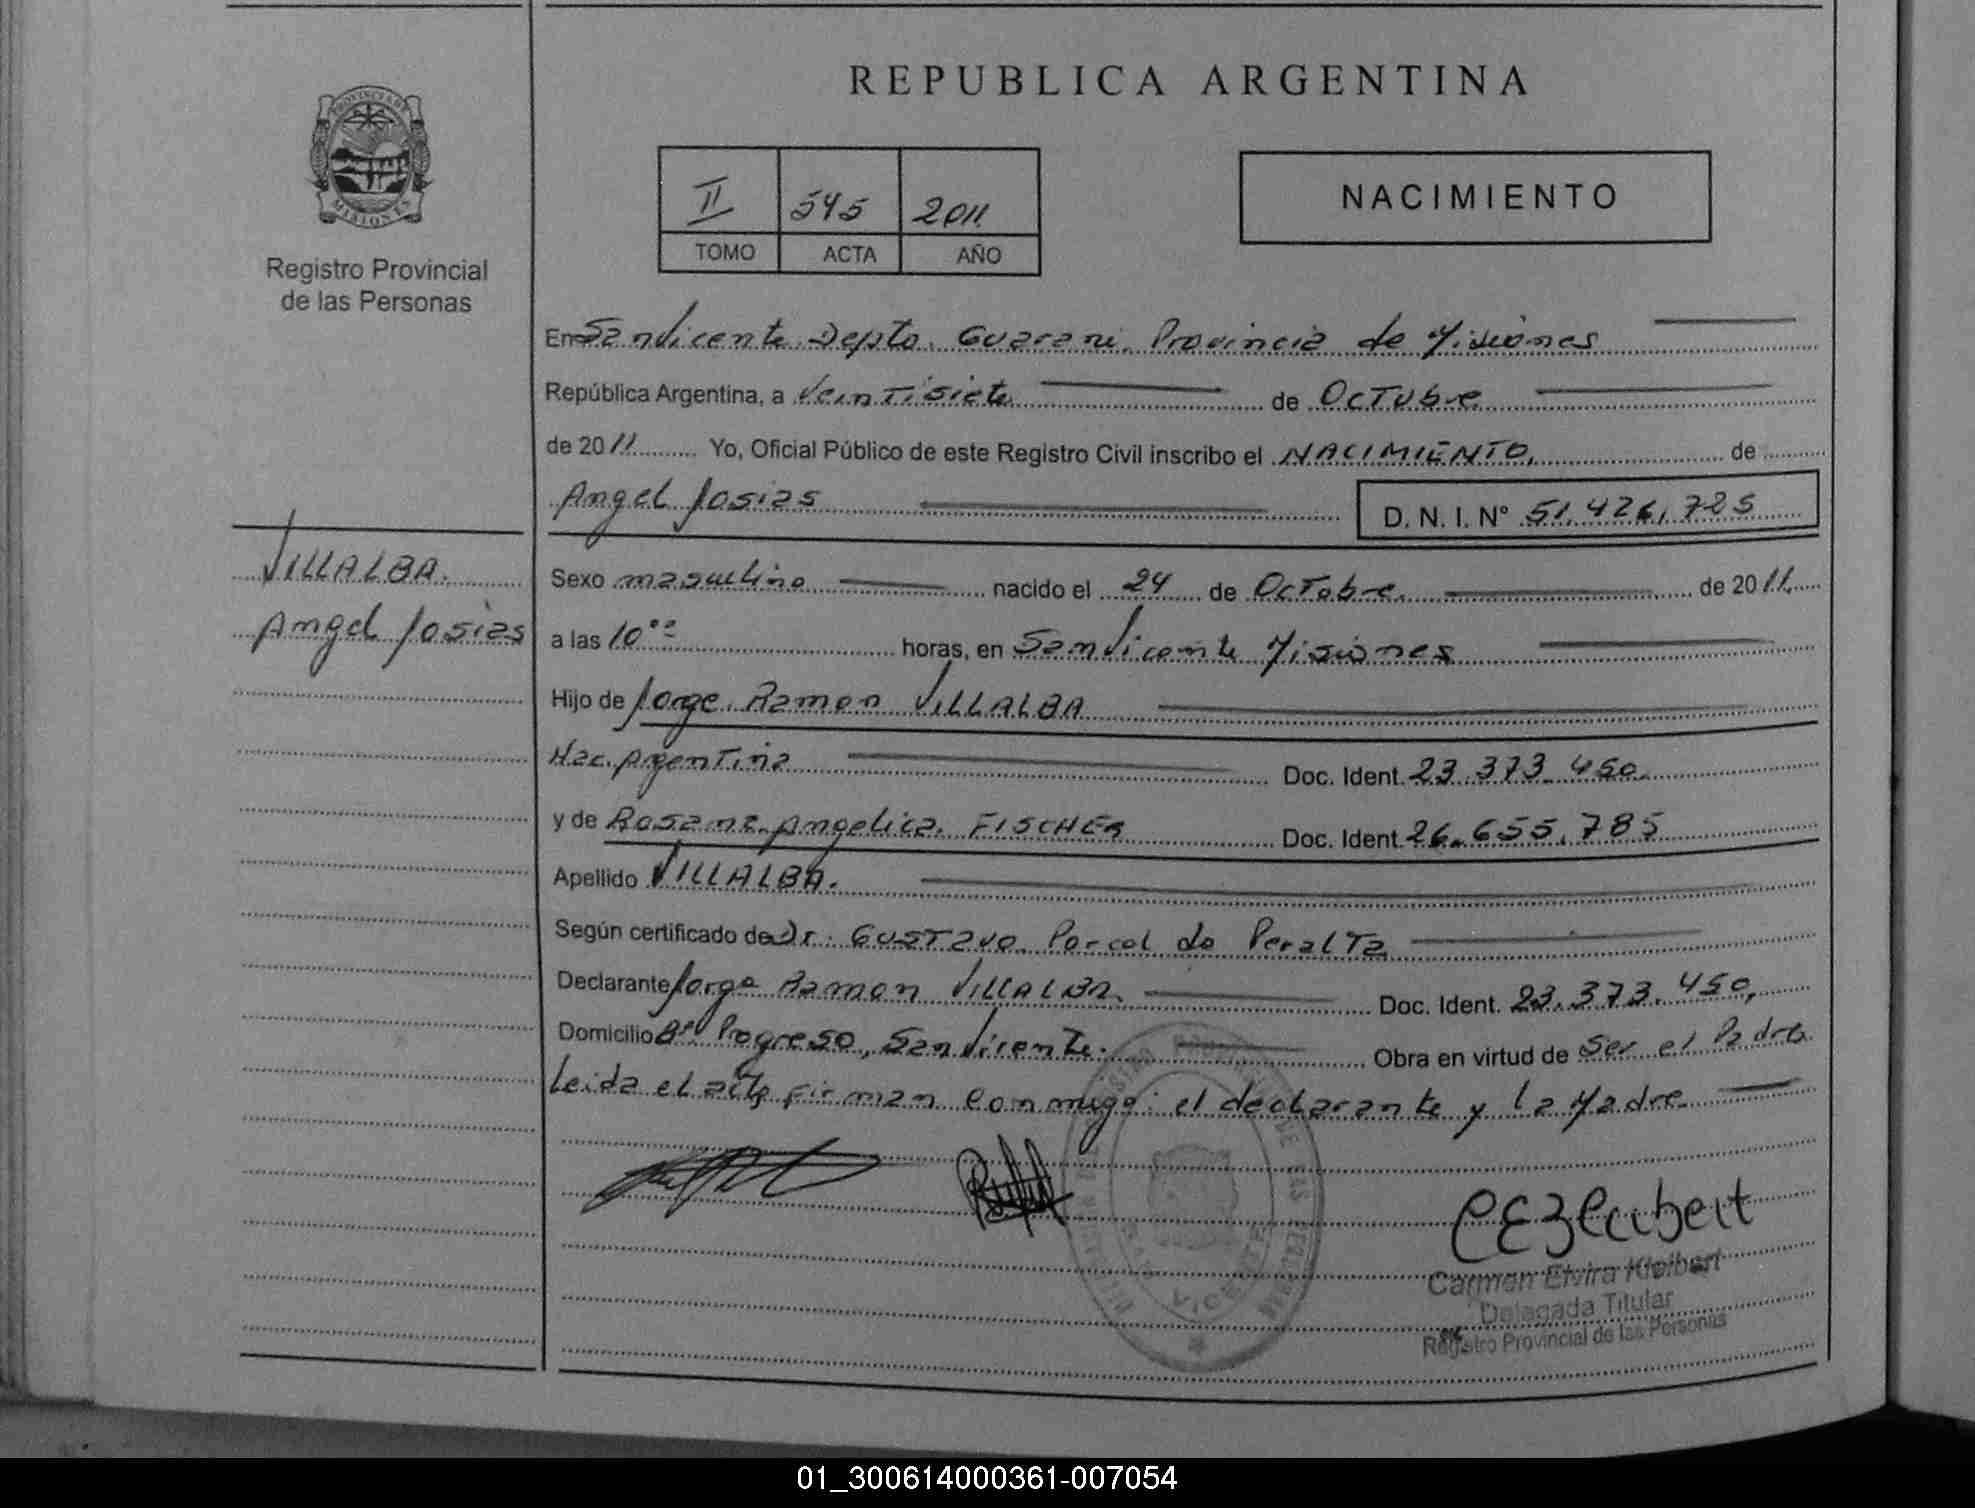 REPUBLICA ARGENTINA
PROVINCIA DE
MISIONES
Registro Provincial
de las Personas
II 545 2011
TOMO ACTA AÑO
NACIMIENTO
En San Vicente Depto. Guarani Provincia de Misiones
República Argentina, a Veintisiete de Octubre
de 2011 Yo, Oficial Público de este Registro Civil inscribo el NACIMIENTO de
Angel Josias D. N. I. N° 51.426.725
VILLALBA.
Angel Josias
Sexo masculino nacido el 24 de Octubre de 2011
a las 10°° horas, en San Vicente Misiones
Hijo de Jorge Ramon VILLALBA
Nac. Argentina Doc. Ident. 23.373.450
y de Rosana Angelica FISCHER Doc. Ident. 26.655.785
Apellido VILLALBA.
Según certificado de Dr. Gustavo Porcel de Peralta
Declarante Jorge Ramon VILLALBA Doc. Ident. 23.373.450
Domicilio B° Progreso, San Vicente. Obra en virtud de Ser el Padre
Leida el acta firman conmigo: el declarante y la Madre
VICENTE
Carmen Elvira Kleibert
Delegada Titular
Registro Provincial de las Personas
01_300614000361-007054